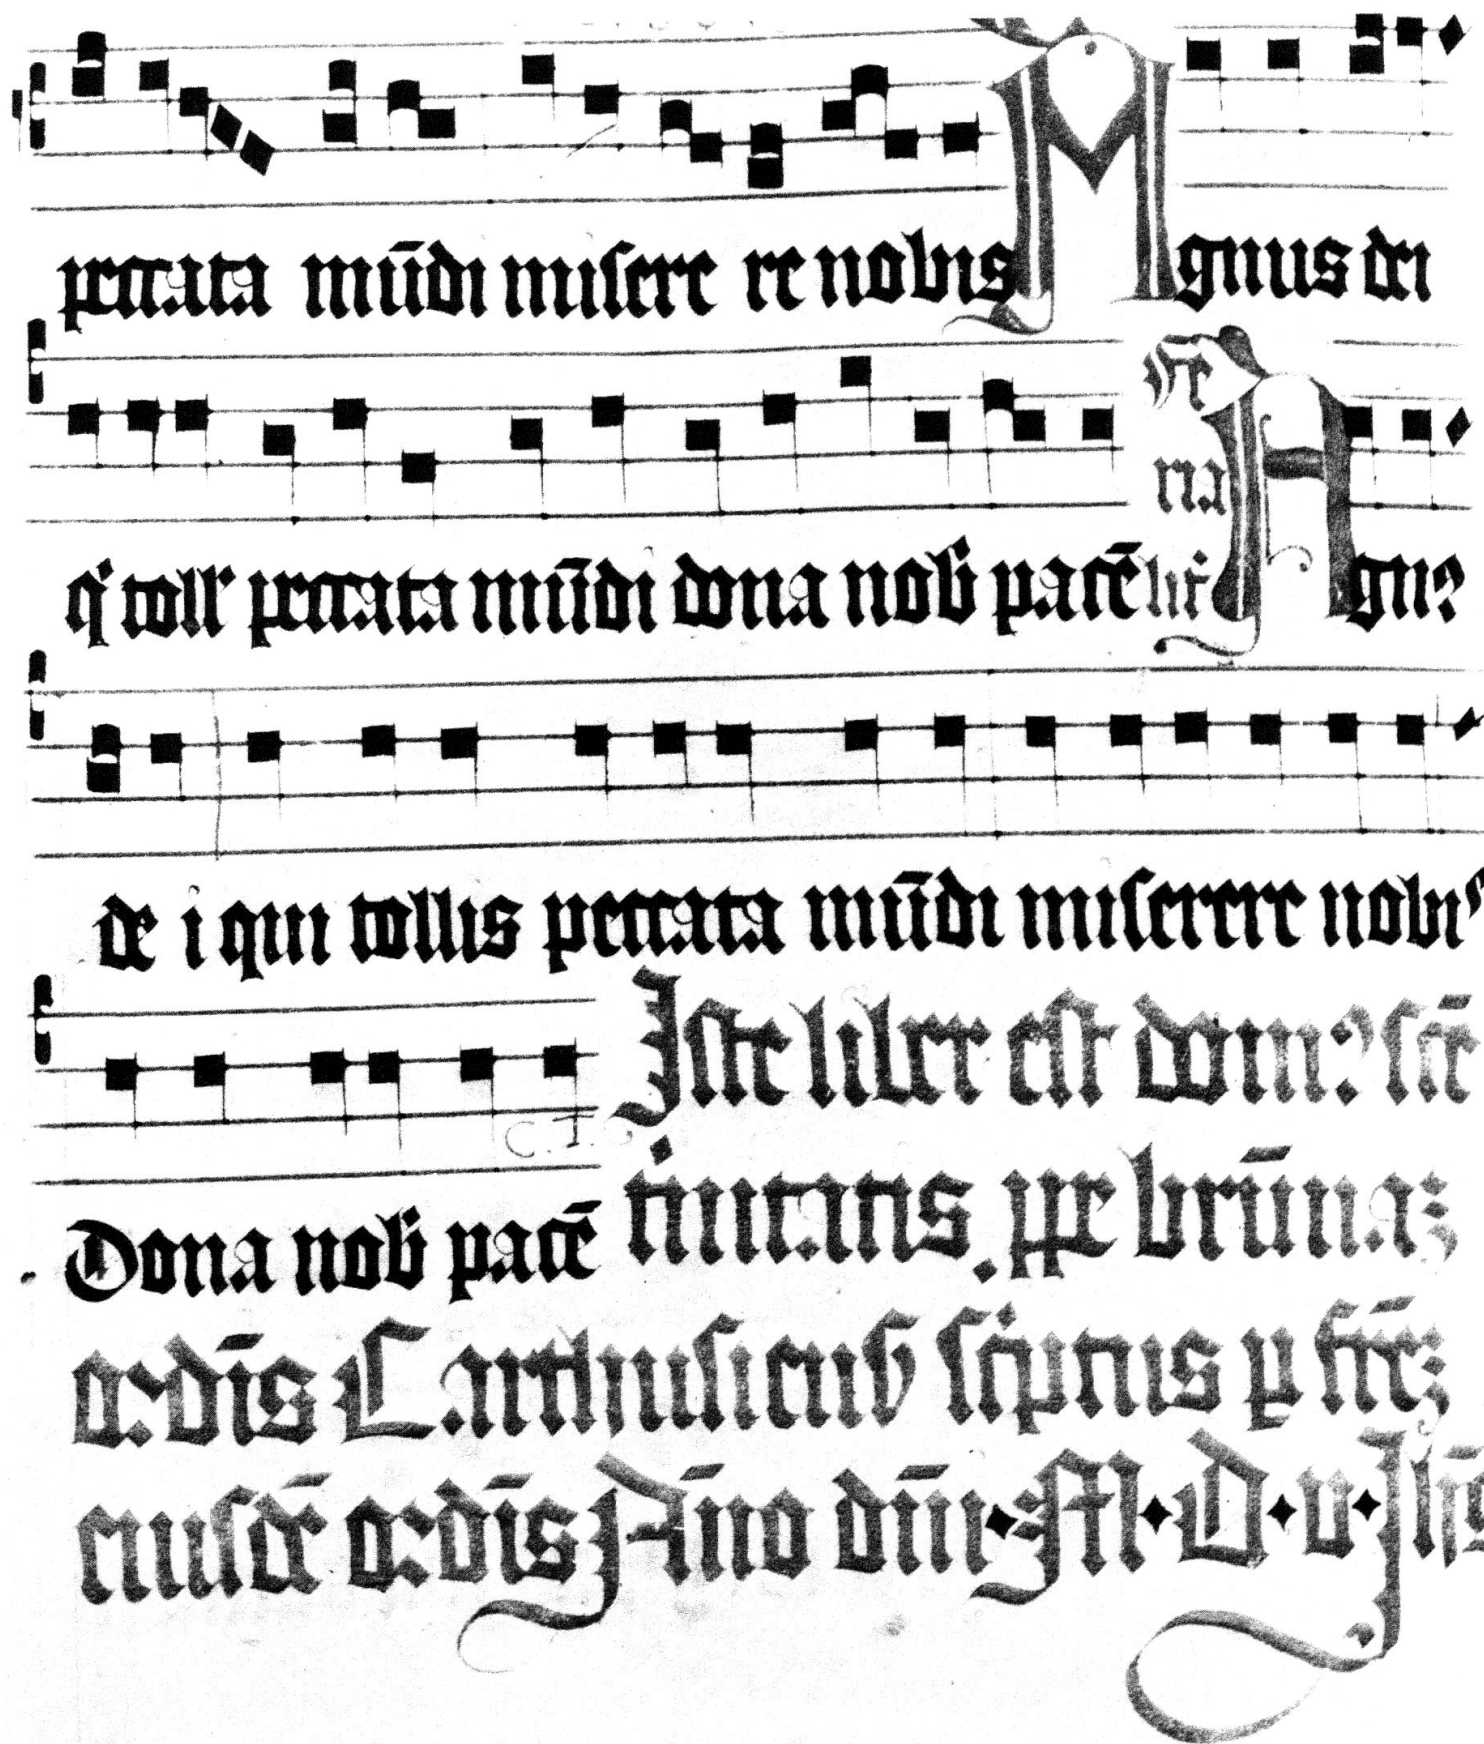 peccata mūdi misere re nobis Agnus dei
q' toll' peccata mūdi dona nob' pacē Fe ria lit' Agn9
de i qui tollis peccata mūdi miserere nobis
Dona nob' pacē
Iste liber est dom9 sc̄e
t'nitatis ꝓpe brūnaz
ordīs Carthusicūs sc'ptus ꝑ fr̄ez
eiusdē ordīs Āno dn̄i · M · D · v ·